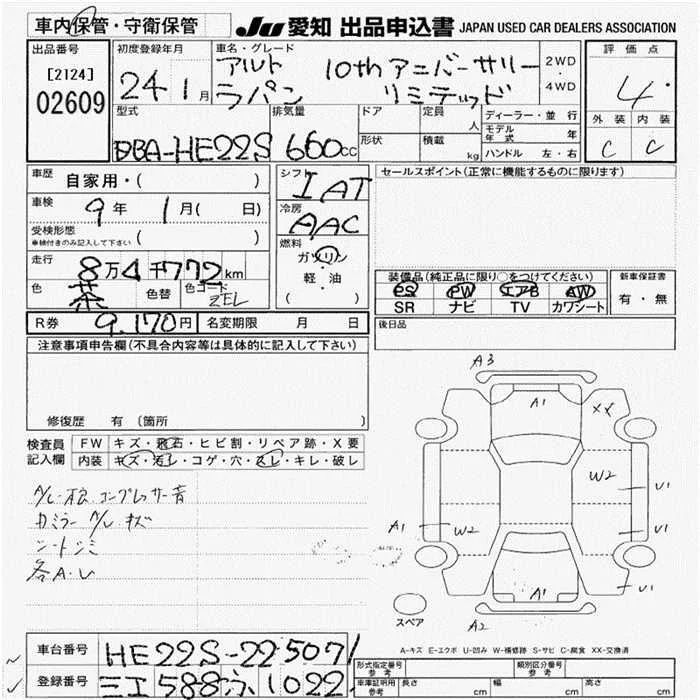 車内保管・守衛保管
JU 愛知 出品申込書 JAPAN USED CAR DEALERS ASSOCIATION
出品番号
[2124]
02609
初度登録年月
24 1月
車名・グレード
アルト ラパン
10thアニバーサリー リミテッド
2WD
4WD
評価点
4
外装 内装
C C
型式
DBA-HE22S
排気量
660cc
ドア
形状
定員 人
積載 kg
ディーラー・並行
モデル年式 年
ハンドル 左・右
車歴 自家用・( )
車検 9年 1月( 日)
受検形態
車検付きのみ記入して下さい ( )
走行 8万4千772km
色 茶 色替 色コード ZEL
シフト IAT
冷房 AAC
燃料
ガソリン
軽・油
( )
セールスポイント(正常に機能するものに限ります)
装備品(純正品に限り○をつけてください)
PS PW エアB AW
SR ナビ TV カワシート
新車保証書
有・無
R券 9.170円 名変期限 月 日
後日品
注意事項申告欄(不具合内容等は具体的に記入して下さい)
修復歴 有 〔箇所 〕
検査員記入欄
FW キズ・飛石・ヒビ割・リペア跡・X要
内装 キズ・汚レ・コゲ・穴・スレ・キレ・破レ
コンプレッサー音
カミラー A/L キズ
シートシミ
各A・U
A3
A1
XX
W2
U1
A1
W2
U1
U1
A1
A2
スペア
A-キズ E-エクボ U-凹み W-補修跡 S-サビ C-腐食 XX-交換済
車台番号 HE22S-225071
登録番号 三工588ふ1022
型式指定番号 参考
類別区分番号 参考
車庫証明用 参考
長さ cm 幅 cm 高さ cm